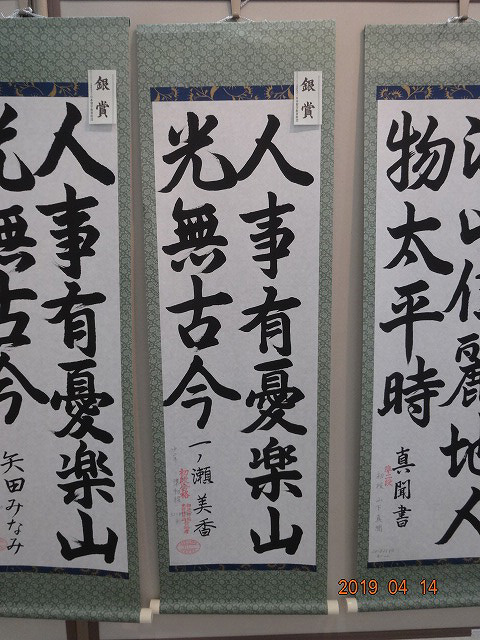 江山信麗地人
物太平時
真聞書
銀賞
人事有憂楽山
光無古今
一ノ瀬美香
銀賞
人事有憂楽山
光無古今
矢田みなみ
2019 04 14